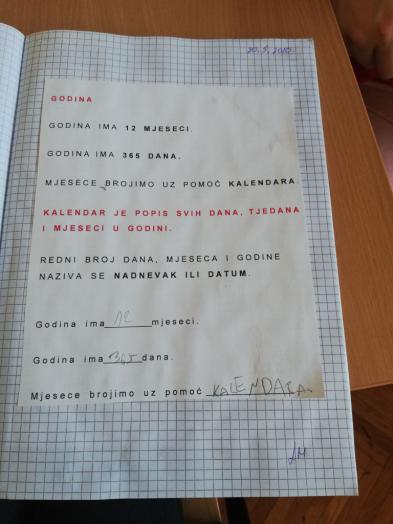 20.5.2010
GODINA
GODINA IMA 12 MJESECI.
GODINA IMA 365 DANA.
MJESECE BROJIMO UZ POMOĆ KALENDARA.
KALENDAR JE POPIS SVIH DANA, TJEDANA
I MJESECI U GODINI.
REDNI BROJ DANA, MJESECA I GODINE
NAZIVA SE NADNEVAK ILI DATUM.
Godina ima 12 mjeseci.
Godina ima 365 dana.
Mjesece brojimo uz pomoć KALENDARA.